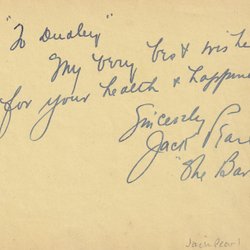 "To Dudley"
My very best wishe
for your health & happine
Sincerely
Jack Pearl
"The Bar
Jack Pearl